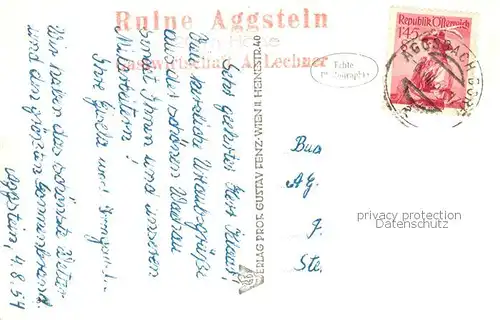 Ruine Aggstein
Gastwirtschaft A. Lechner
Echte
Photographie
Republik Österreich
1S45
AGGSBACH-DORF
Sehr geehrter Herr
herzliche Urlaubsgrüße
aus der schönen Wachau
sendet Ihnen und unseren
Mitarbeitern!
Ihre Gisela und
Wir haben das schönste Wetter
und den größten Sonnenbrand.
Aggstein, 4.8.54
VERLAG PROF. GUSTAV FENZ-WIEN II. HEINESTR. 40
Bua
AG.
J.
Ste.
privacy protection
Datenschutz